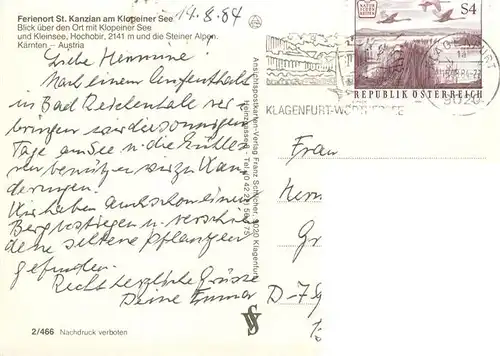 Ferienort St. Kanzian am Klopeiner See
Blick über den Ort mit Klopeiner See
und Kleinsee, Hochobir, 2141 m und die Steiner Alpen.
Kärnten – Austria
14.8.84
Liebe Hermine
Nach einem Aufenthalt
in Bad Reichenhall ver-
bringen wir die sonnigen
Tage am See u. die kühle-
ren benutzen wir zu Wan-
derungen.
Wir haben auch schon einen
Berg bestiegen u. verschie
dene seltene Pflanzen
gefunden.
Recht herzliche Grüsse
Deine Emma
2/466 Nachdruck verboten
Ansichtspostkarten-Verlag Franz Schilcher, 9020 Klagenfurt
S4
REPUBLIK ÖSTERREICH
KLAGENFURT
9020
Frau
Herm
Gr
D-7